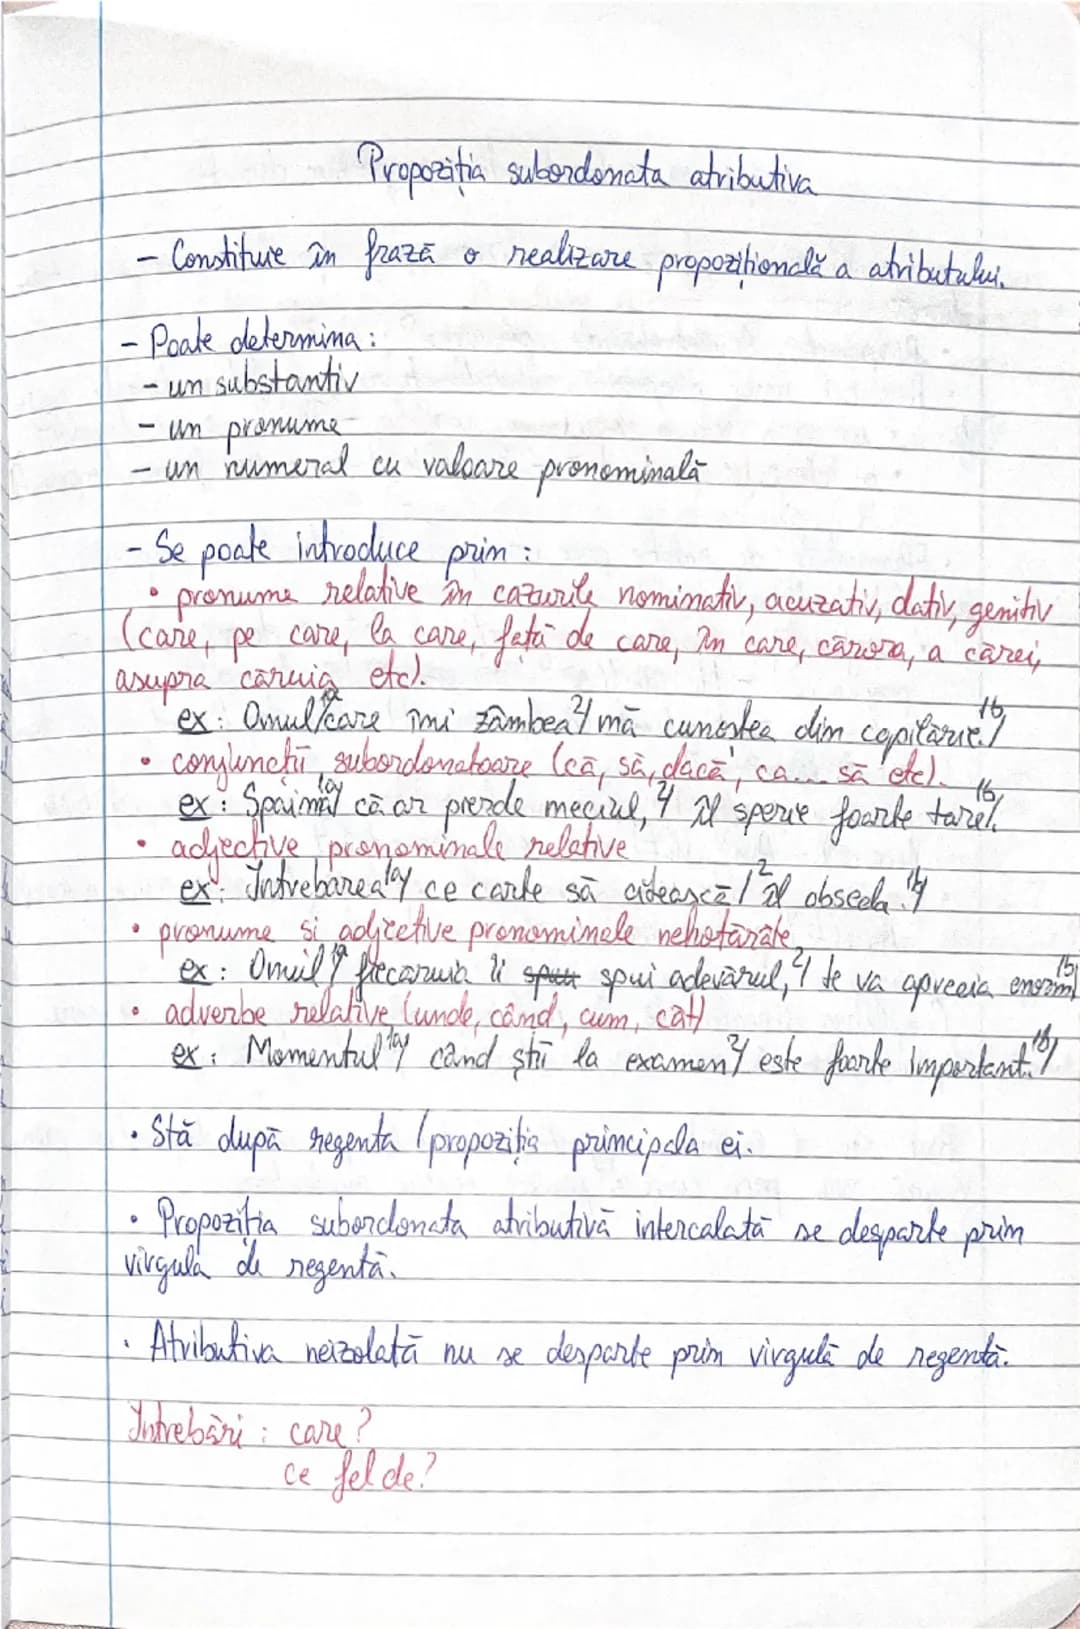 Propoziția subordonata atributiva
- Constituie în frază o realizare propozițională a atributului.
- Poate determina:
- un substantiv
- un pronume
- un numeral cu valoare pronominală
- Se poate introduce prin:
• pronume relative în cazurile nominativ, acuzativ, dativ, genitiv
(care, pe care, la care, față de care, în care, cărora, a cărei,
asupra căruia etc).
ex: Omul 1a/ care îmi zâmbea 2/ mă cunoștea din copilărie. 1b/
• conjuncții subordonatoare (că, să, dacă, ca... să etc).
ex: Spaima 1a/ că ar pierde meciul, 2/ îl sperie foarte tare. 1b/
• adjective pronominale relative
ex: Întrebarea 1a/ ce carte să citească / 2 îl obseda. 1b/
• pronume si adjective pronominale nehotărâte
ex: Omul 1a/ fiecăruia îi spui adevărul, 2/ te va aprecia enorm 1b/
• adverbe relative (unde, când, cum, cât)
ex: Momentul 1a/ când știi la examen 2/ este foarte important. 1b/
• Stă după regenta (propoziția principala ei.
• Propoziția subordonata atributivă intercalată se desparte prin
virgula de regentă.
• Atributiva neizolată nu se desparte prin virgulă de regentă.
Întrebări: care?
ce fel de?